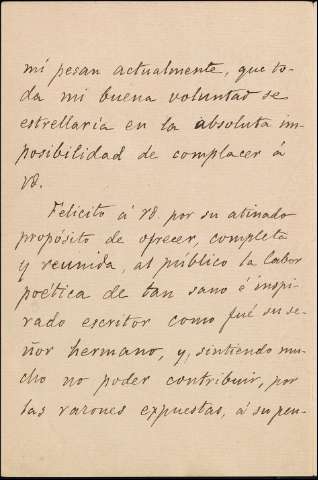 mí pesan actualmente, que to-
da mi buena voluntad se
estrellaría en la absoluta im-
posibilidad de complacer á
Vd.
Felicito á Vd. por su atinado
propósito de ofrecer, completa
y reunida, al público la labor
poética de tan sano é inspi-
rado escritor como fué su se-
ñor hermano, y, sintiendo mu-
cho no poder contribuir, por
las razones expuestas, á su pen-